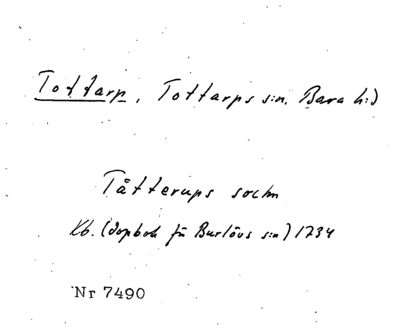 Tottarp, Tottarps s:n, Bara h:d
Tåtterups sochn
Kb. (dopbok för Burlövs s:n) 1734
Nr 7490